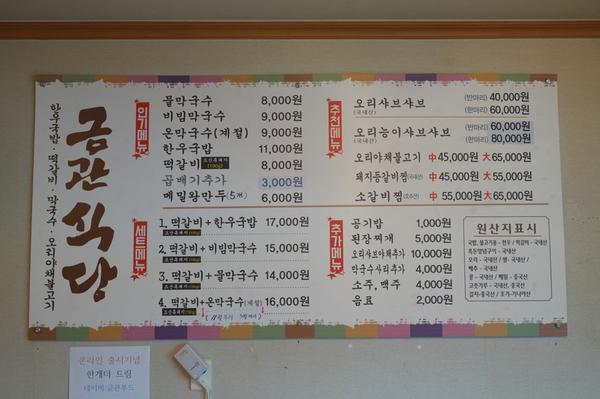 금관식당
한우국밥 · 떡갈비 · 막국수 · 오리야채불고기
인기메뉴
물막국수 8,000원
비빔막국수 9,000원
온막국수(계절) 9,000원
한우국밥 11,000원
떡갈비 국산흑돼지 (190g) 8,000원
곱배기추가 3,000원
메밀왕만두(5개) 6,000원
세트메뉴
1. 떡갈비+한우국밥 17,000원
2. 떡갈비+비빔막국수 15,000원
3. 떡갈비+물막국수 14,000원
4. 떡갈비+온막국수(계절) 16,000원
추천메뉴
오리샤브샤브 (국내산) (반마리) 40,000원
(한마리) 60,000원
오리능이샤브샤브 (국내산) (반마리) 60,000원
(한마리) 80,000원
오리야채불고기 中 45,000원 大 65,000원
돼지등갈비찜(국내산) 中 45,000원 大 55,000원
소갈비찜(호주산) 中 55,000원 大 65,000원
추가메뉴
공기밥 1,000원
된장찌개 5,000원
오리샤브야채추가 10,000원
막국수사리추가 4,000원
소주, 맥주 4,000원
음료 2,000원
원산지표시
국밥, 불고기용 - 한우 / 떡갈비 - 국내산
오리 - 국내산 / 쌀 - 국내산 /
배추 - 국내산
콩 - 국내산 / 메밀 - 중국산
고춧가루 - 국내산, 중국산
온라인 출시기념
한개더 드림
네이버:금관푸드